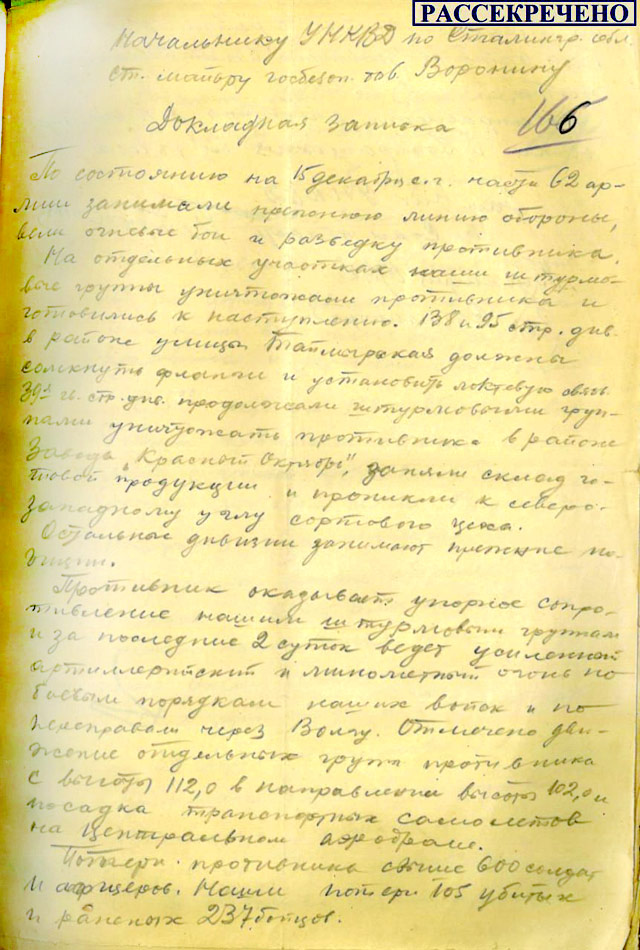 РАССЕКРЕЧЕНО
Начальнику УНКВД по Сталингр. обл.
ст. майору госбезоп. тов. Воронину
Докладная записка
166
По состоянию на 15 декабря с.г. части 62 ар-
мии занимали прежнюю линию обороны,
вели огневые бои и разведку противника.
На отдельных участках наши штурмо-
вые группы уничтожали противника и
готовились к наступлению. 138 и 95 стр. див.
в районе улицы Таймырская должны
сомкнуть фланги и установить локтевую связь.
39я гв. стр. див. продолжали штурмовыми груп-
пами уничтожать противника в районе
завода "Красный Октябрь", заняли склад го-
товой продукции и проникли к северо-
западному углу сортового цеха.
Остальные дивизии занимают прежние по-
зиции.
Противник оказывает упорное сопро-
тивление нашим штурмовым группам
и за последние 2 суток ведет усиленный
артиллерийский и минометный огонь по
боевым порядкам наших войск и по
переправам через Волгу. Отмечено дви-
жение отдельных групп противника
с высоты 112,0 в направлении высоты 102,0 и
посадка транспортных самолетов
на Центральном аэродроме.
Потери противника свыше 600 солдат
и офицеров. Наши потери 105 убитых
и раненых 237 бойцов.